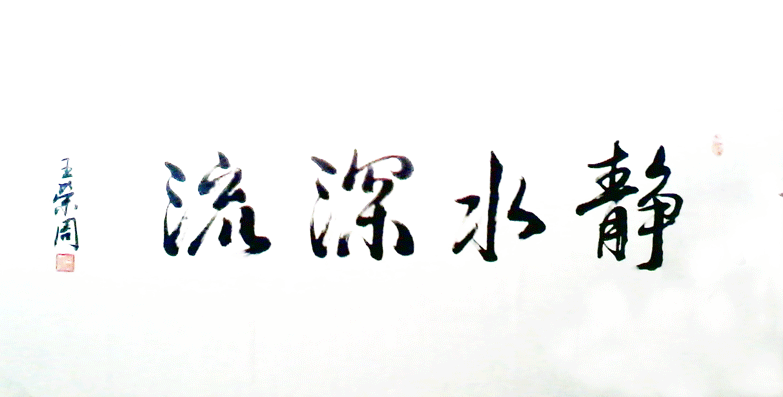 静水深流
王荣周